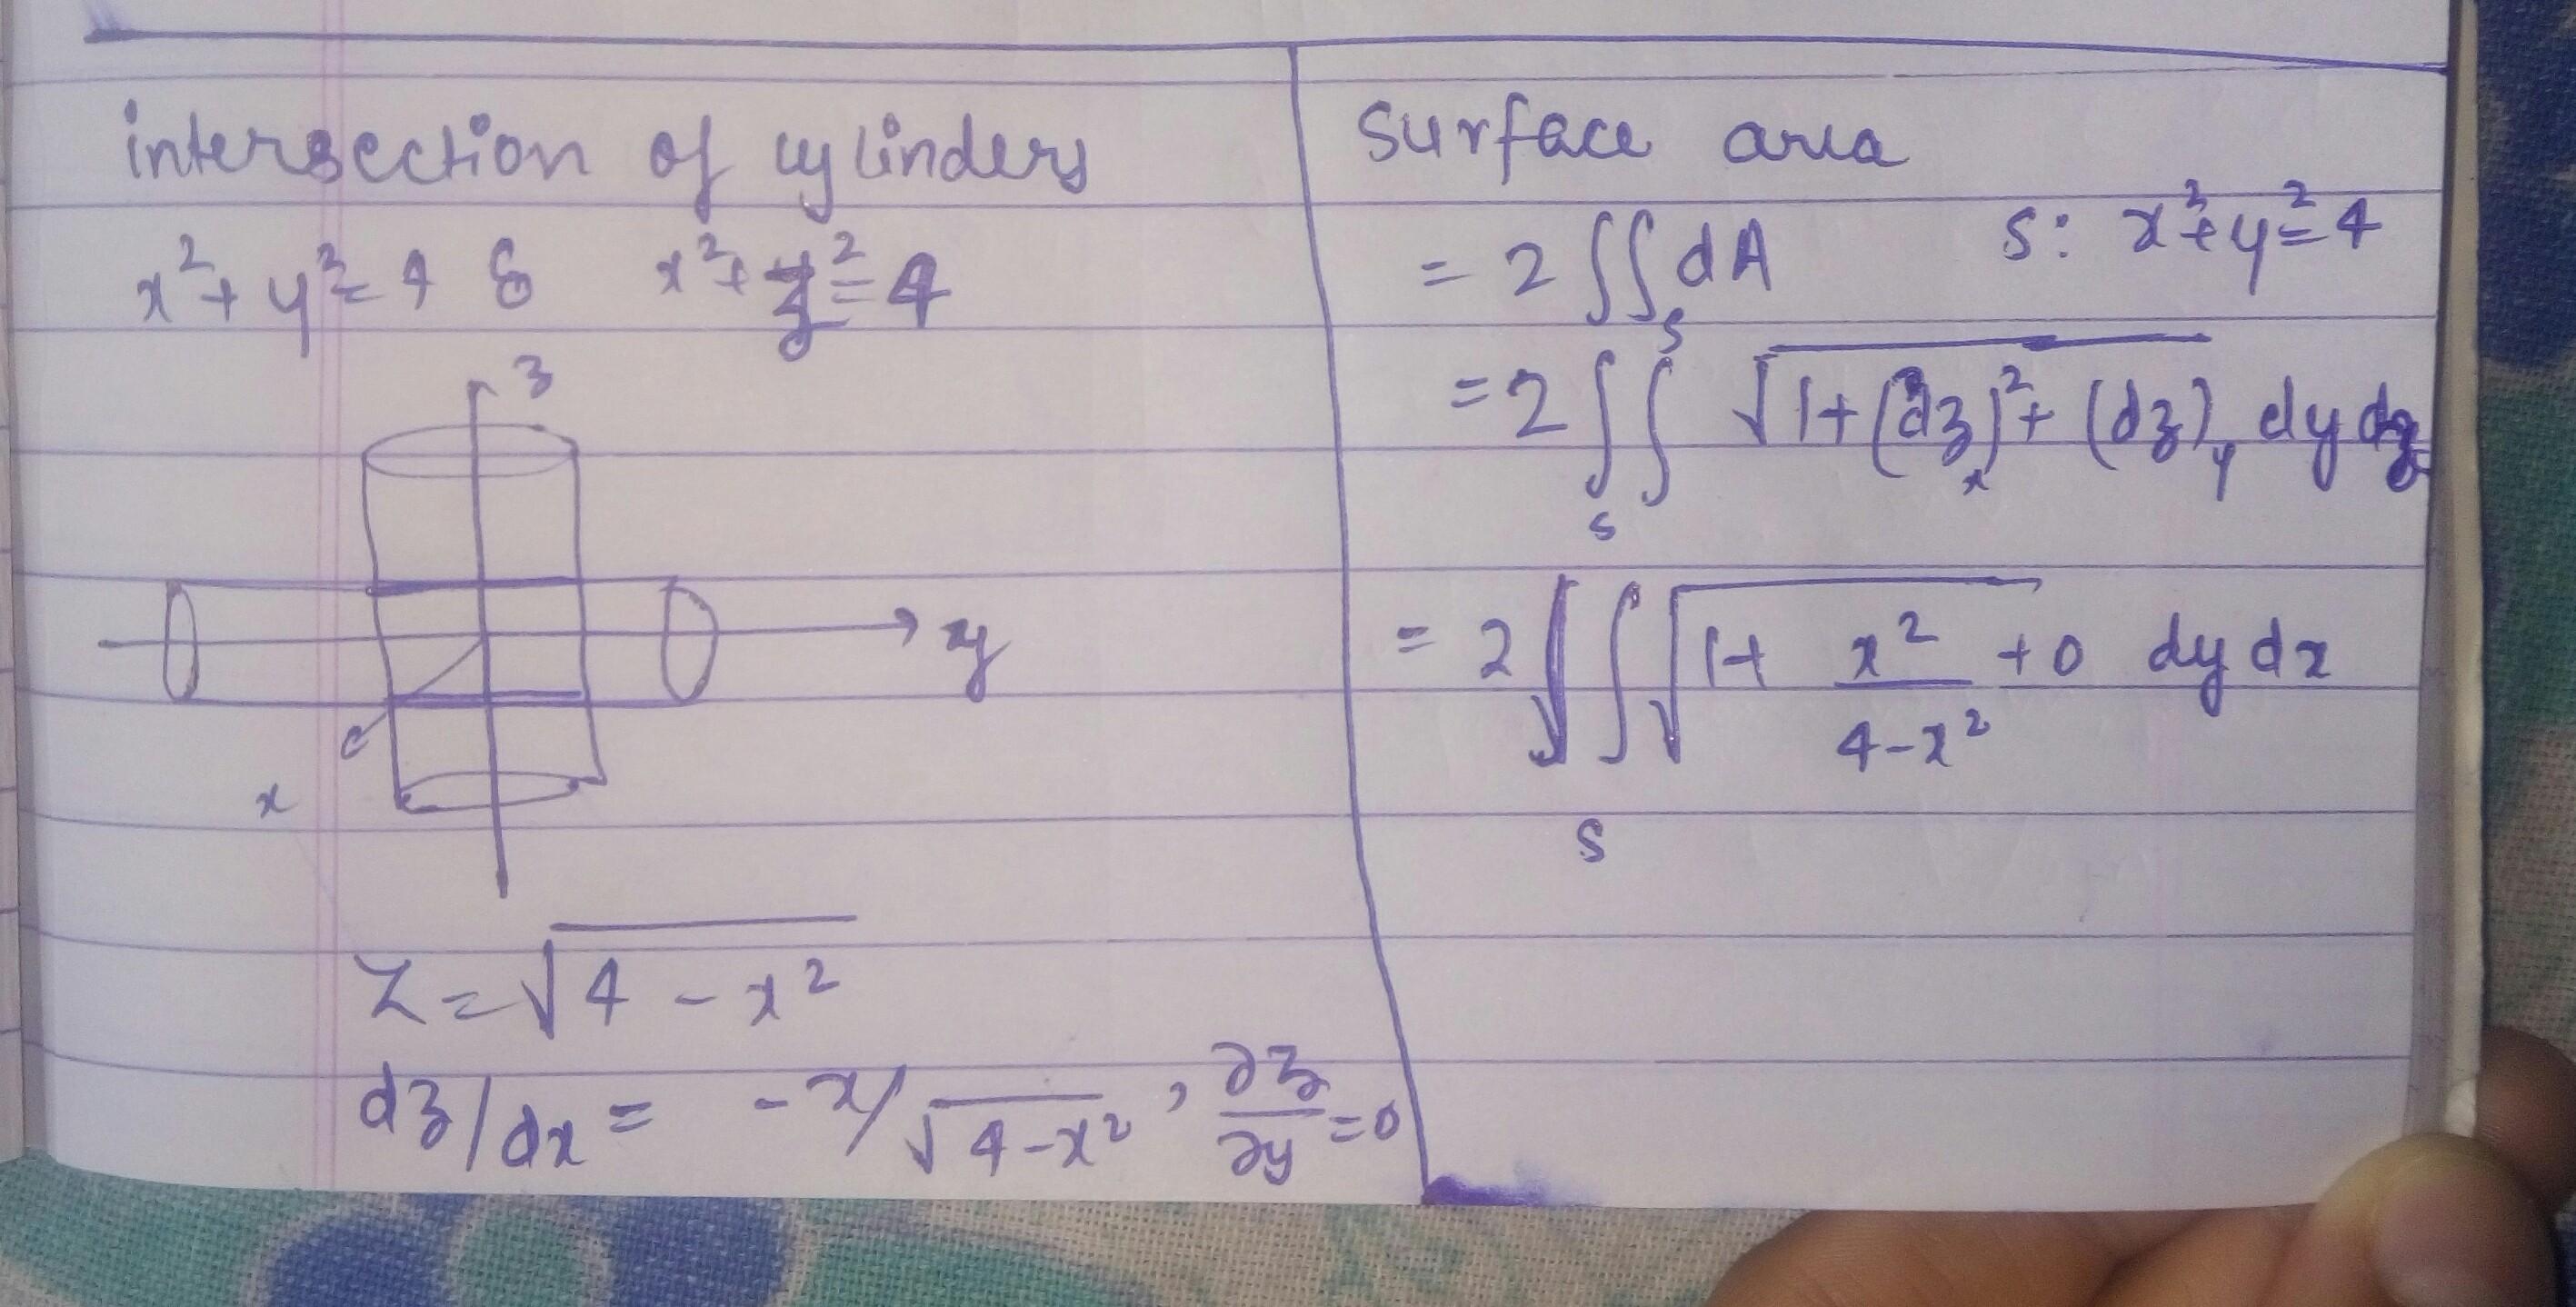 intersection of cylinders
x²+y²=4 & x²+z²=4
z
y
x
z=√4-x²
dz/dx = -x/√4-x² , ∂z/∂y=0
Surface area
= 2∬dA S: x²+y²=4
S
=2∬ √1+(dz)²+(dz) dy dx
x y
S
= 2∬√1+ x²/4-x² +0 dy dx
S